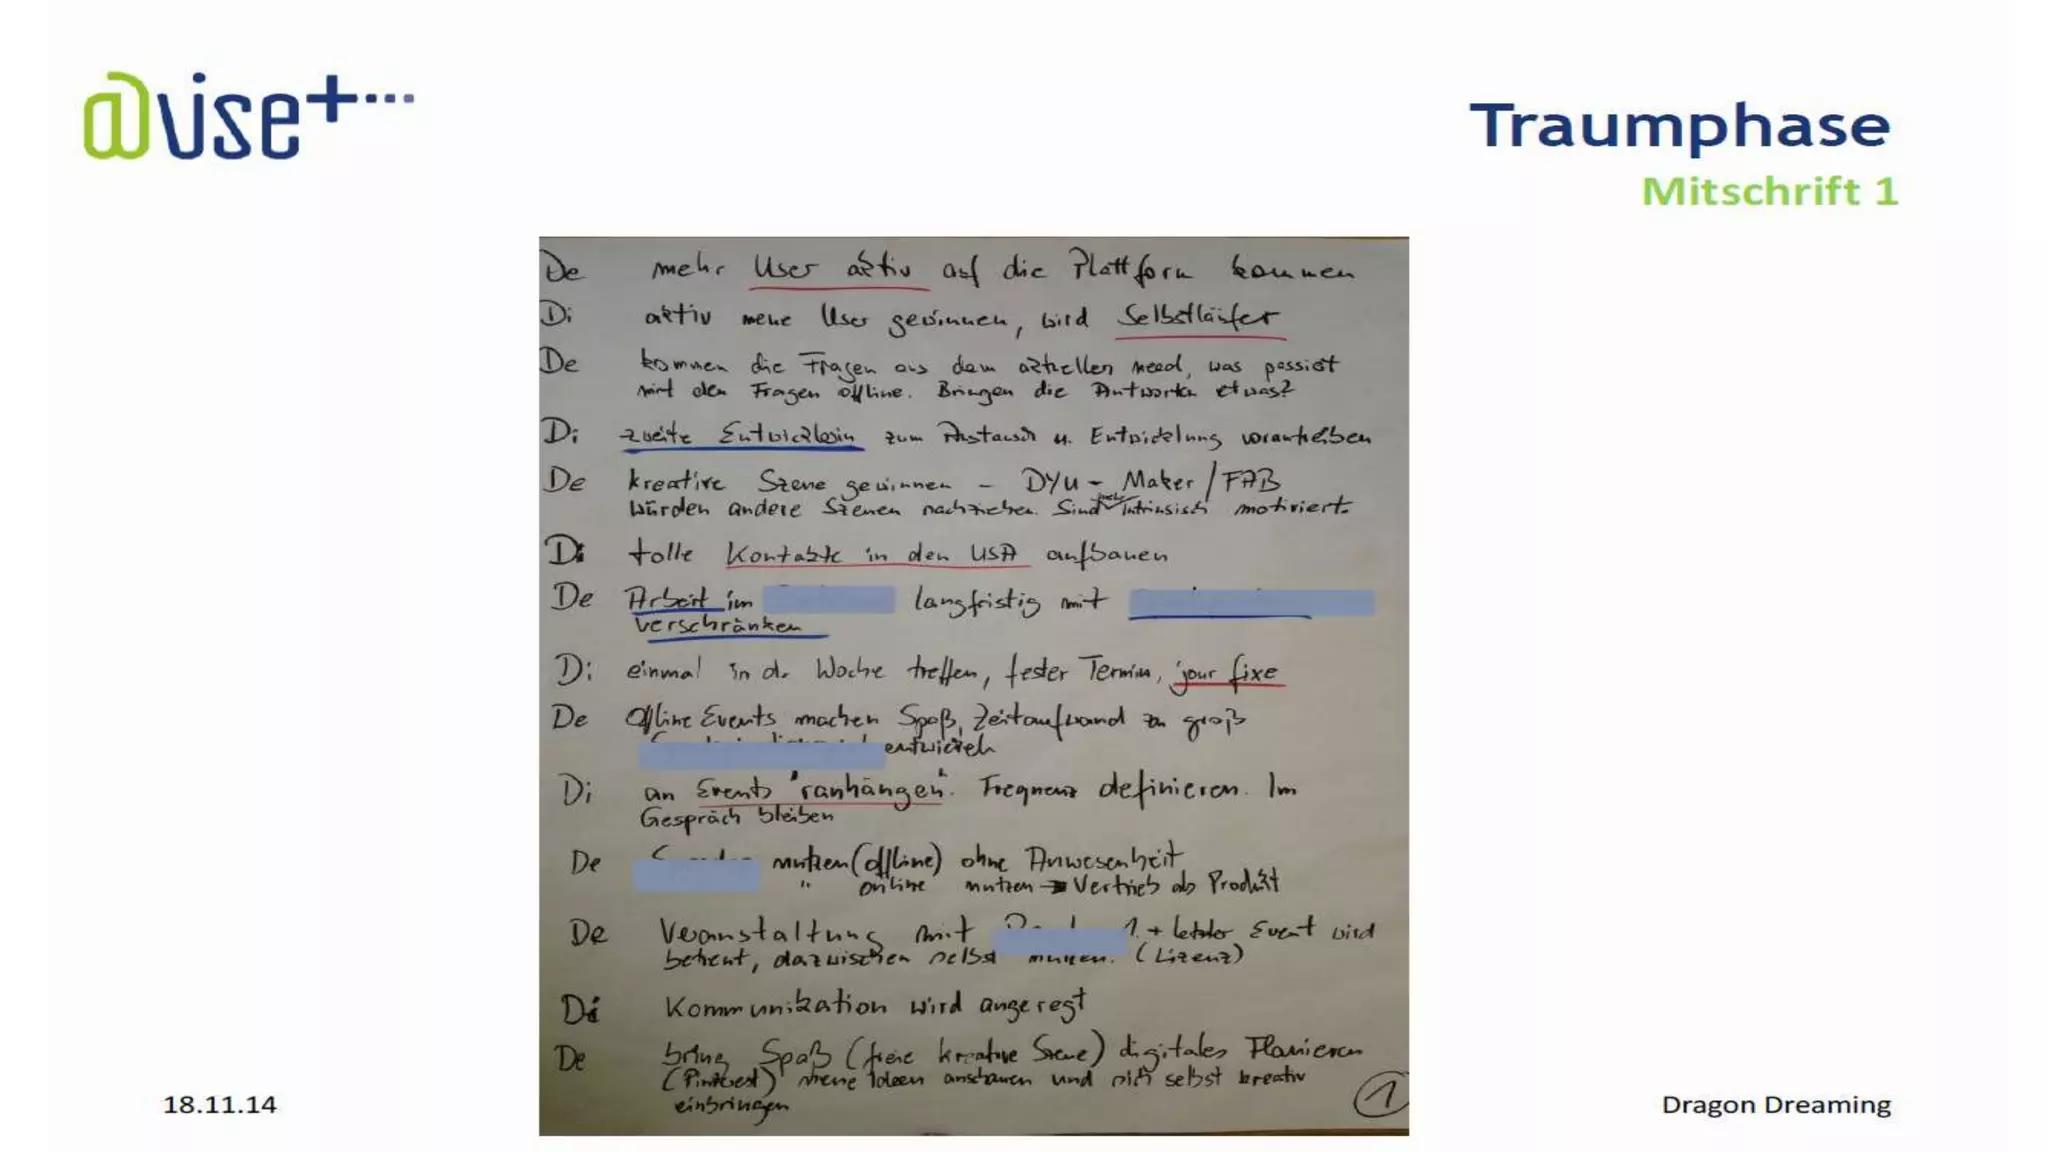 @vise+...
Traumphase
Mitschrift 1
De mehr User aktiv auf die Plattform kommen
Di aktiv neue User gewinnen, wird Selbstläufer
De kommen die Fragen aus dem aktuellen need, was passiert
mit den Fragen offline. Bringen die Antworten etwas?
Di zweite Entwicklerin zum Austausch u. Entwicklung vorantreiben
De kreative Szene gewinnen - DYU - Maker / FAB
würden andere Szenen nachziehen. Sind mehr intrinsisch motiviert.
Di tolle Kontakte in den USA aufbauen
De Arbeit im langfristig mit
verschränken
Di einmal in d. Woche treffen, fester Termin, jour fixe
De Offline Events machen Spaß, Zeitaufwand zu groß
entwickeln
Di an Events "ranhängen". Frequenz definieren. Im
Gespräch bleiben
De nutzen (offline) ohne Anwesenheit
" online nutzen → Vertrieb als Produkt
De Veranstaltung mit 1. + letzter Event wird
betreut, dazwischen selbst nutzen. (Lizenz)
Di Kommunikation wird angeregt
De bring Spaß (freie kreative Szene) digitales Flanieren
(Pinterest) Ideen anschauen und sich selbst kreativ
einbringen
1
18.11.14
Dragon Dreaming